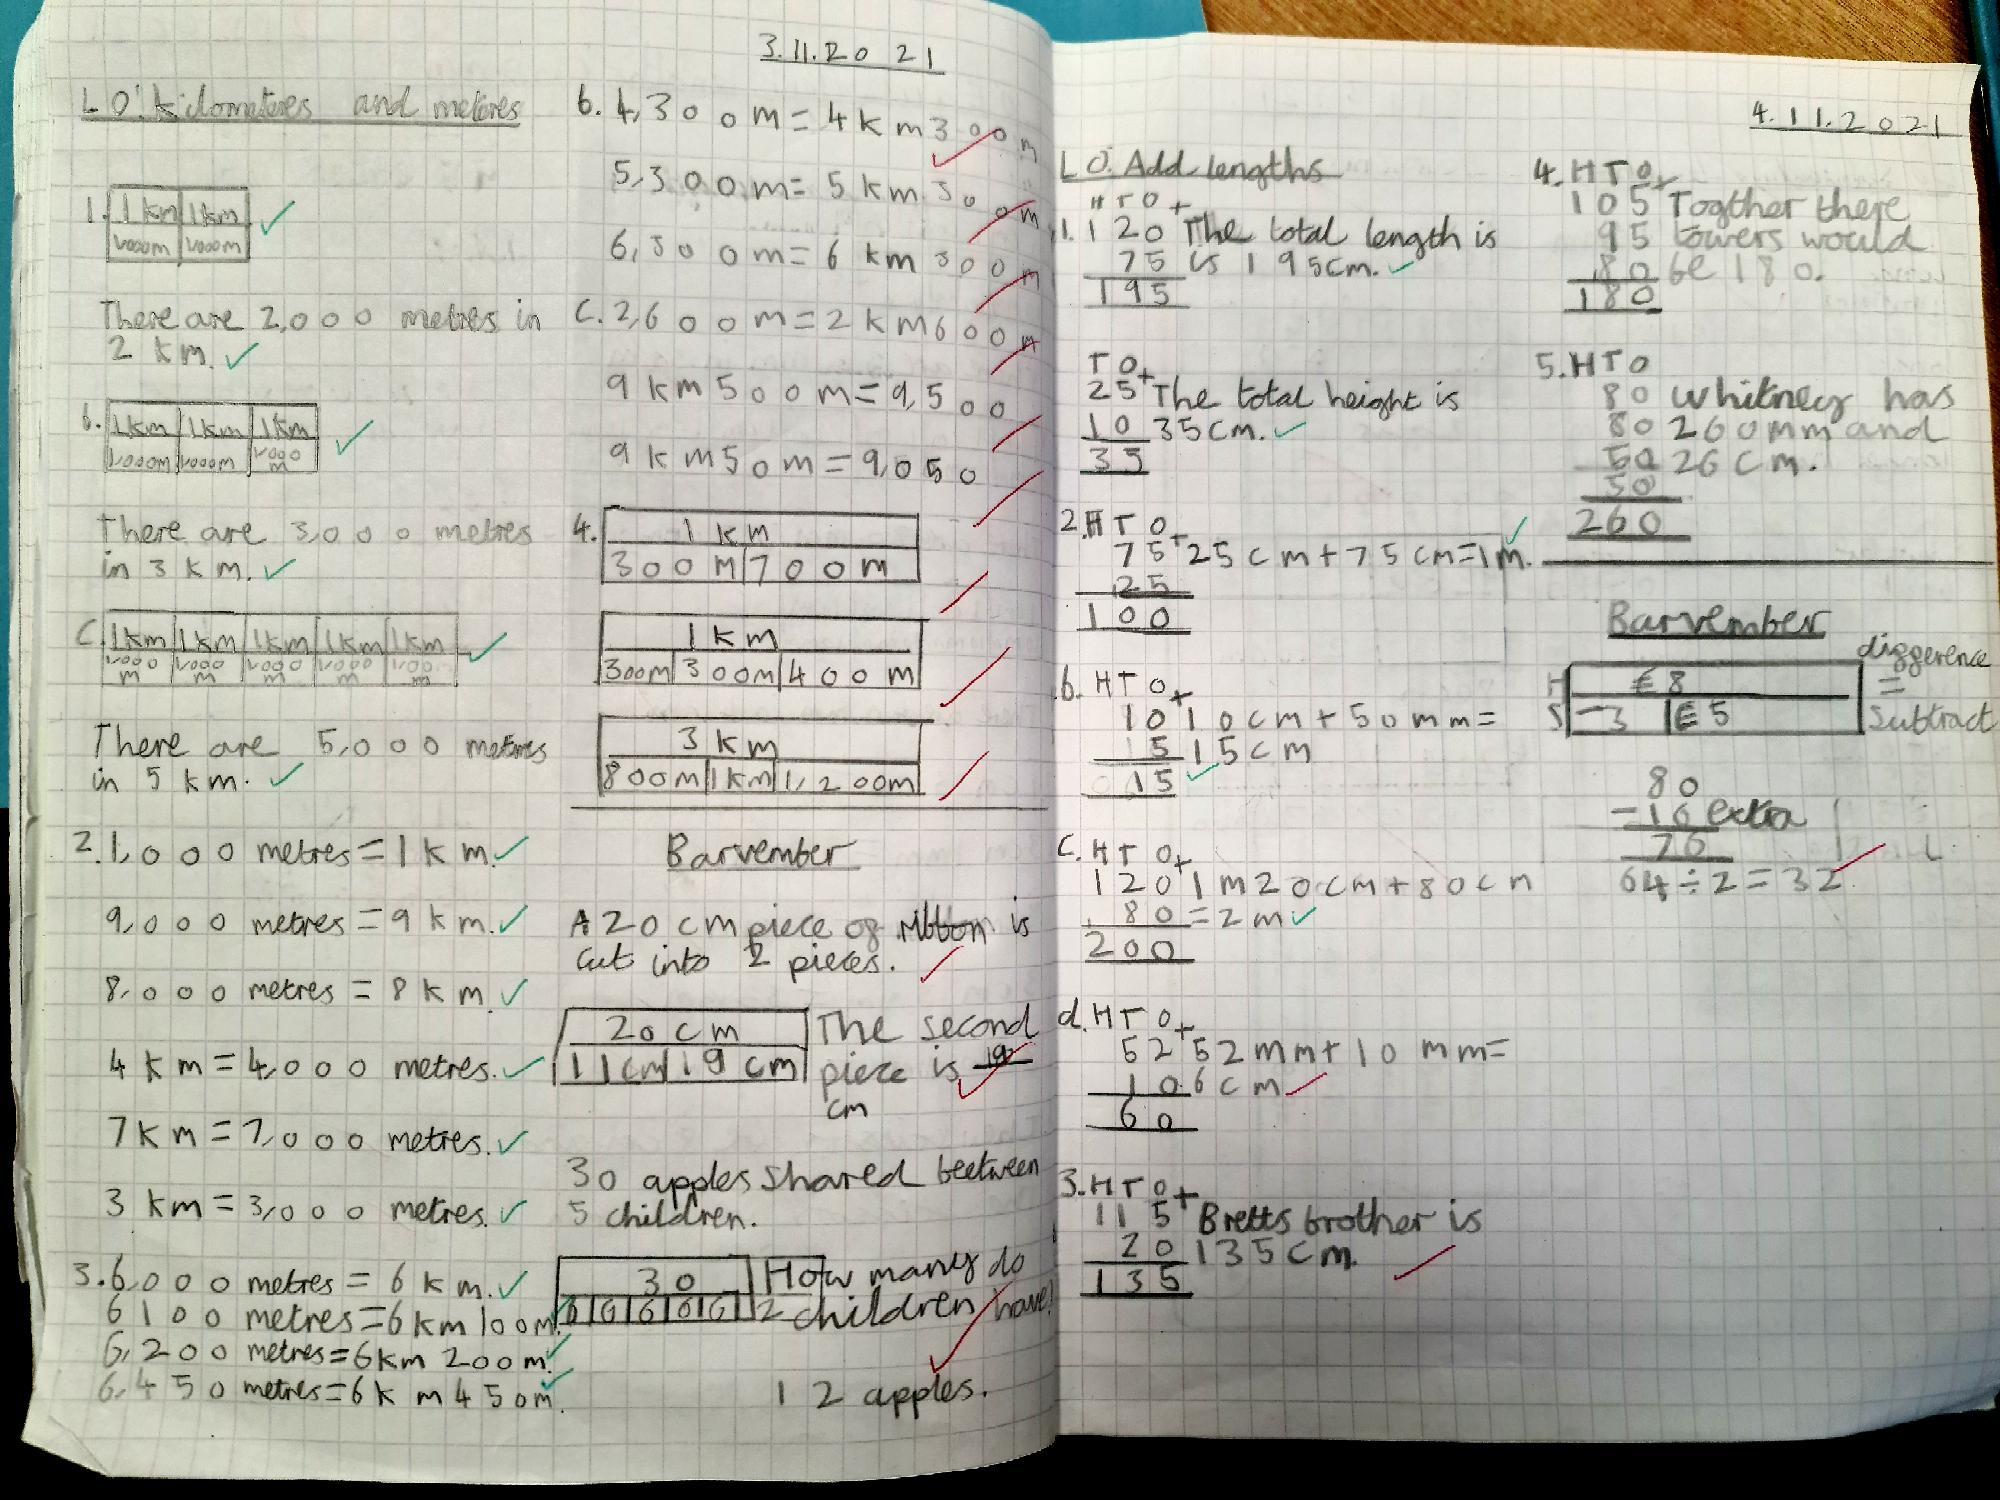 3.11.2021
LO: Kilometeres and metres
1. 1km 1km
1,000m 1,000m
There are 2,000 metres in
2 km.
b. 1km 1km 1km
1,000m 1,000m 1,000
m
There are 3,000 metres
in 3 km.
C. 1km 1km 1km 1km 1km
1,000 1,000 1,000 1,000 1,000
m m m m m
There are 5,000 metres
in 5 km.
2. 1,000 metres = 1 km.
9,000 metres = 9 km.
8,000 metres = 8 km.
4 km = 4,000 metres.
7 km = 7,000 metres.
3 km = 3,000 metres.
3. 6,000 metres = 6 km.
6100 metres = 6 km 100m.
6,200 metres = 6km 200m.
6,450 metres = 6km 450m.
b. 4,300m = 4km 300m
5,300m = 5km 300m
6,300m = 6 km 300m
C. 2,600m = 2km 600m
9km 500m = 9,500
9km 50m = 9,050
4. 1 km
300m 700m
1 km
300m 300m 400m
3 km
800m 1km 1,200m
Barvember
A 20 cm piece of ribbon is
cut into 2 pieces.
20cm
11cm 19cm
The second
piece is 19
cm
30 apples shared beetween
5 children.
30
6 6 6 6 6
How many do
2 children have?
12 apples.
4.11.2021
LO: Add lengths
H T O +
1. 120 The total length is
75 is 195cm.
195
T O +
25 The total height is
10 35cm.
35
2. H T O +
75 25cm + 75cm = 1m.
25
100
b. H T O +
10 10cm + 50mm =
5 15cm
015
C. H T O +
120 1m20cm + 80cm
80 = 2m
200
d. H T O +
52 52mm + 10mm =
10 6cm
60
3. H T O +
115 Bretts brother is
20 135cm.
135
4. H T O +
105 Togther there
95 towers would
80 be 180.
180
5. H T O
80 Whitney has
80 260mm and
50 26cm.
50
260
Barvember
£8
3 £5
diggerence
=
Subtract
80
-16 extra
76
64 ÷ 2 = 32